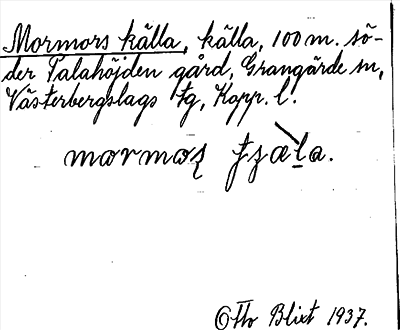 Mormors källa, källa, 100 m. sö-
der Palahöjden gård, Grangärde sn,
Västerbergslags tg, Kopp. l.
mormoʂ tʒæla.
Otto Blixt 1937.